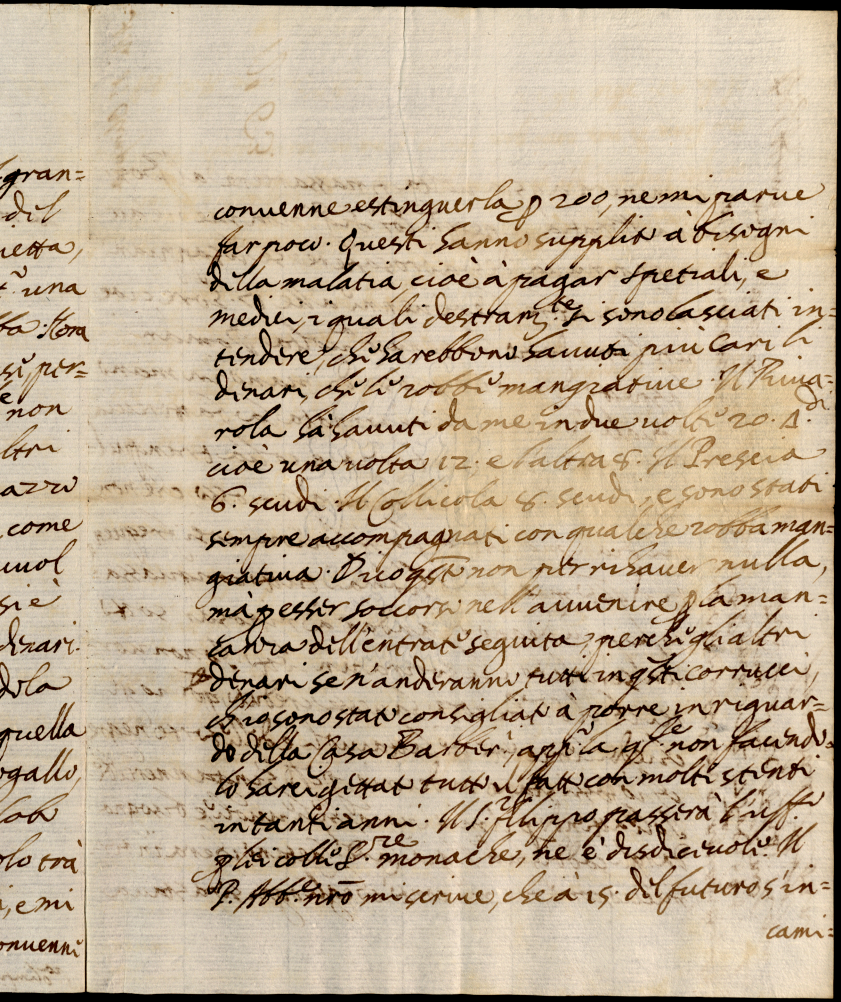 gran=
del
ietta,
una
Hora
se per=
non
ltri
azzi
come
uuol
si è
denari.
dola
quella
ogallo,
olo trà
i, e mi
onuenne
conuenne estinguerla p 200, ne mi parue
far poco. Questi hanno supplito à bisogni
della malatia, cioè à pagar spetiali, e
medici, i quali destram.te si sono lasciati in=
tendere, che harebbono hauuti più cari li
denari, che le robbe mangiatiue. Il Riua=
rola hà hauuti da me in due uolte 20. Δ.di
cioè una uolta 12. e l'altra 8. Il Prescia
6. scudi. Il Collicola 8. scudi, e sono stati
sempre accompagnati con qualche robba man=
giatiua. Dico qsto non per rihauer nulla,
mà p esser soccorso nell'auuenire p la man=
canza dell'entrate seguita, perche gli altri
denari se n'anderanno tutti in qsti corrucci,
ch'io sono stato consigliato à porre in riguar=
do della Casa Barber.a, app.o la qle non facendo=
lo harei gettato tutto il fatto con molti stenti
in tanti anni. Il S.r filippo passerà l'uff.o
p lei colle S.re monache, ne è disdiceuole. Il
P. Abb.e nrõ mi scriue, che à 15. del futuro s'in=
cami=